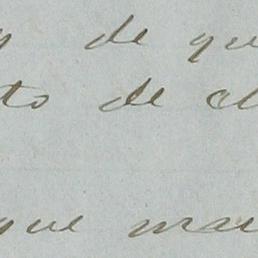 de que
to de el
que mar